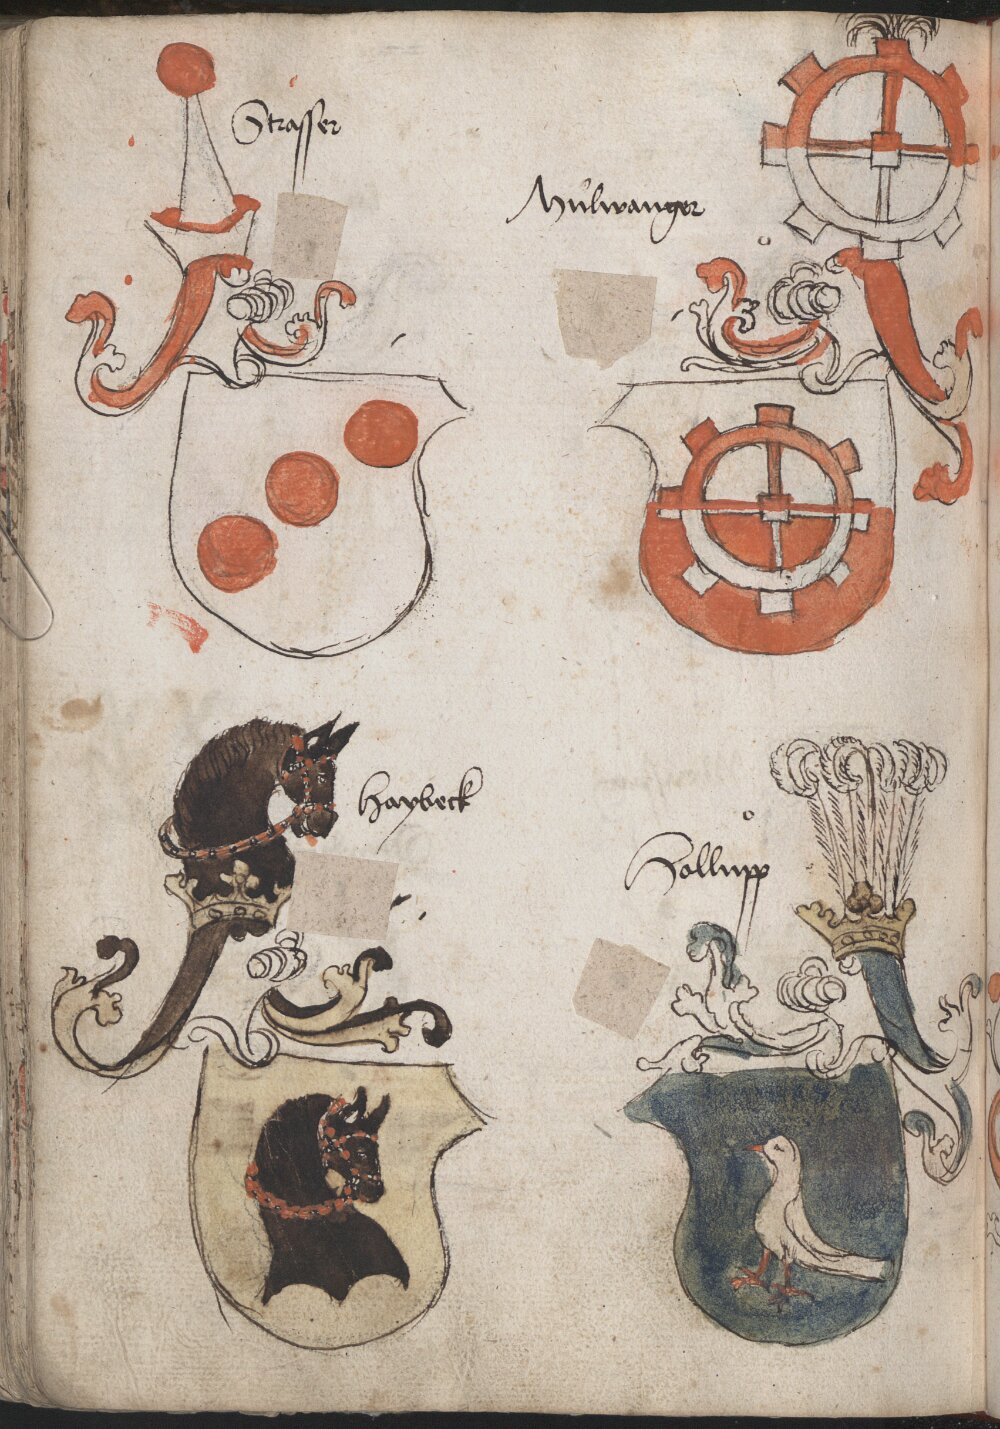 Strasser
Mülwanger
Haybeck
Zollupp